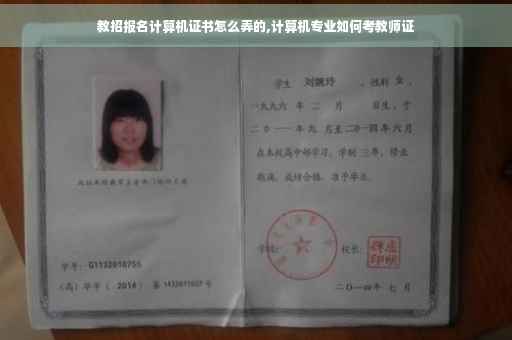 教招报名计算机证书怎么弄的,计算机专业如何考教师证
学生 刘婉玲 ,性别 女 ,
一九九六 年 二 月 日生, 于
二0一一 年 九 月至 二0一四 年 六 月
在本校高中部学习, 学制 三年, 修业
期满, 成绩合格, 准予毕业。
学号: G1132010755
(高) 毕字 ( 2014 ) 第 1432011037 号
学校:
校长:
二〇一四年 七 月